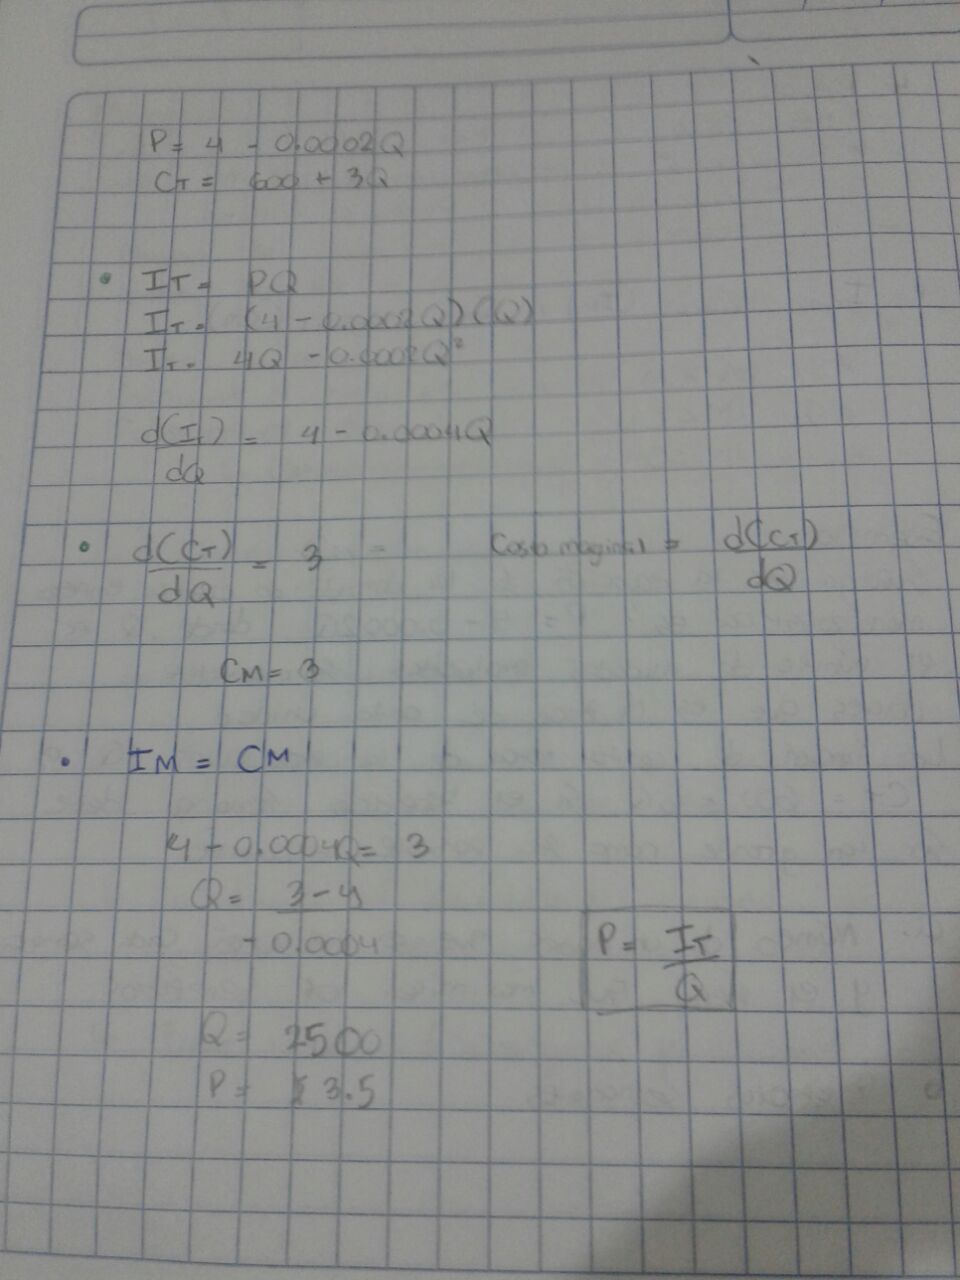 P= 4 - 0.0002Q
CT= 600 + 3Q
• IT= PQ
IT= (4 - 0.0002Q)(Q)
IT= 4Q - 0.0002Q²
d(IT)/dQ = 4 - 0.0004Q
• d(CT)/dQ = 3 Costo maginal = d(CT)/dQ
CM= 3
• IM = CM
4 - 0.0004Q= 3
Q= 3-4
-0.0004
P= IT/Q
Q= 2500
P= 3.5